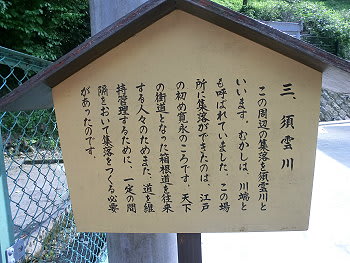 三 須雲川
この周辺の集落を須雲川と
いいます。むかしは、川端と
も呼ばれていました。この場
所に集落ができたのは、江戸
の初め寛永のころです。天下
の街道となった箱根道を往来
する人々のためまた、道を維
持管理するために、一定の間
隔をおいて集落をつくる必要
があったのです。